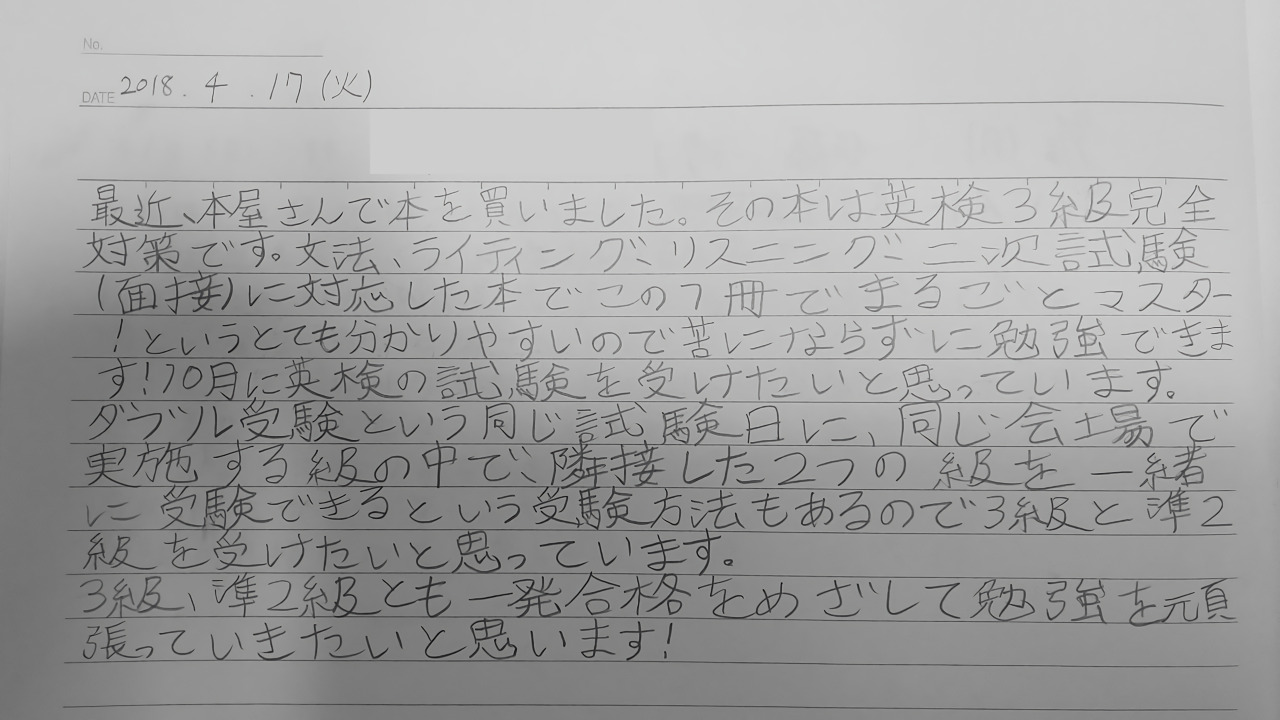 No.
DATE 2018.4.17(火)
最近、本屋さんで本を買いました。その本は英検3級完全
対策です。文法、ライティング、リスニング、二次試験
(面接)に対応した本でこの1冊でまるごとマスター
!というとても分かりやすいので苦にならずに勉強できま
す!10月に英検の試験を受けたいと思っています。
ダブル受験という同じ試験日に、同じ会場で
実施する級の中で、隣接した2つの級を一緒
に受験できるという受験方法もあるので3級と準2
級を受けたいと思っています。
3級、準2級とも一発合格をめざして勉強を頑
張っていきたいと思います!